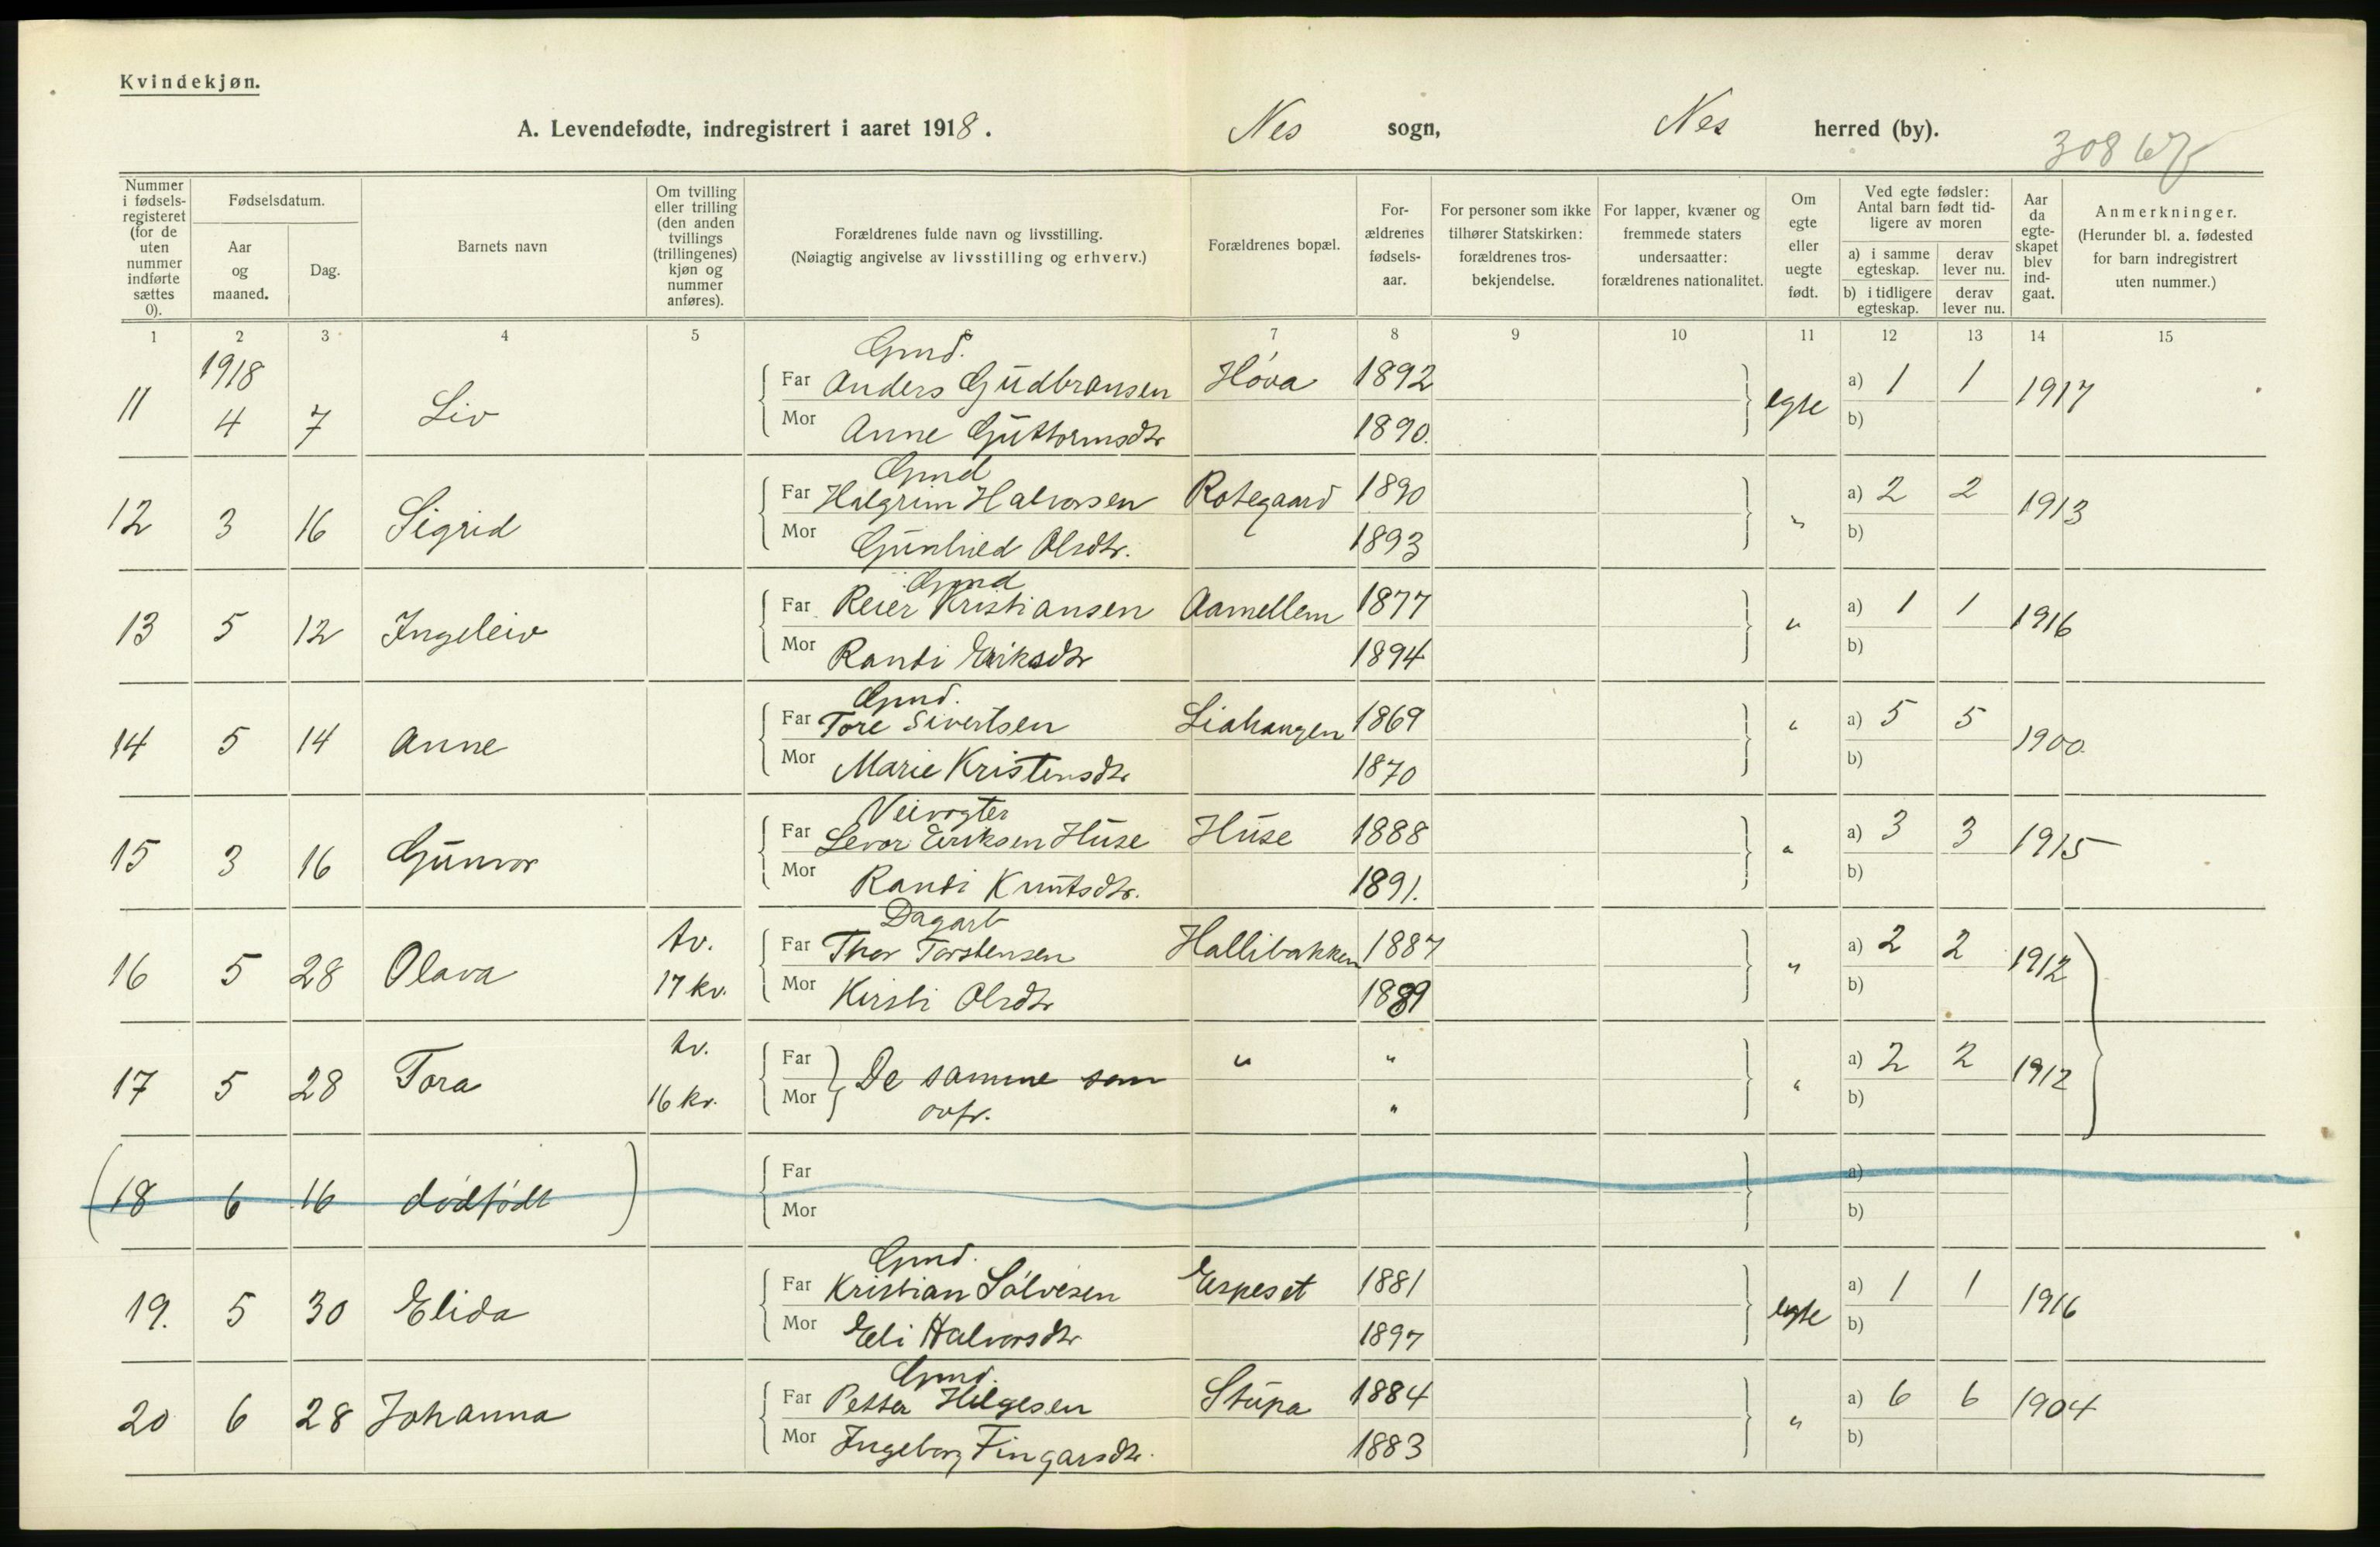 Kvindekjøn.
A. Levendefødte, indregistrert i aaret 1918. Nes sogn, Nes herred (by).
308
Nummer i fødsels-registeret (for de uten nummer indførte sættes 0).
Fødselsdatum.
Aar og maaned.
Dag.
Barnets navn
Om tvilling eller trilling (den anden tvillings (trillingenes) kjøn og nummer anføres).
Forældrenes fulde navn og livsstilling.
(Nøiagtig angivelse av livsstilling og erhverv.)
Forældrenes bopæl.
For-ældrenes fødsels-aar.
For personer som ikke tilhører Statskirken: forældrenes tros-bekjendelse.
For lapper, kvæner og fremmede staters undersaatter: forældrenes nationalitet.
Om egte eller uegte født.
Ved egte fødsler: Antal barn født tid-ligere av moren
a) i samme egteskap. derav lever nu.
b) i tidligere egteskap. derav lever nu.
Aar da egte-skapet blev ind-gaat.
Anmerkninger.
(Herunder bl. a. fødested for barn indregistrert uten nummer.)
1 2 3 4 5 6 7 8 9 10 11 12 13 14 15
1918
Gmd.
11 4 7 Liv Far Anders Gudbransen Hóva 1892 egte a) 1 1 1917
Mor Anne Guttormsdtr 1890. b)
Gmd
12 3 16 Sigrid Far Halgrim Halvorsen Rotegaard 1890 " a) 2 2 1913
Mor Gunhild Olsdtr. 1893 b)
Gmd
13 5 12 Ingeleiv Far Reier Kristiansen Aamellem 1877 " a) 1 1 1916
Mor Randi Eriksdtr 1894 b)
Gmd.
14 5 14 Anne Far Tore Sivertsen Liahaugen 1869 " a) 5 5 1900.
Mor Marie Kristensdtr 1870 b)
Veivogter
15 3 16 Gunvor Far Levor Eriksen Huse Huse 1888 " a) 3 3 1915
Mor Randi Knutsdtr. 1891. b)
Dagarb
16 5 28 Olava tv. 17 kv. Far Thor Torstensen Hallibakken 1887 " a) 2 2 1912
Mor Kirsti Olsdtr 1889 b)
17 5 28 Tora tv. 16 kv. Far Mor De samme som " " " a) 2 2 1912
ovfr. " b)
(18 6 16 dødfødt) Far a)
Mor b)
Gmd.
19. 5 30 Elida Far Kristian Sólvesen Espeset 1881 egte a) 1 1 1916
Mor Eli Halvorsdtr 1897 b)
Gmd.
20 6 28 Johanna Far Petter Helgesen Stupa 1884 " a) 6 6 1904
Mor Ingeborg Fingarsdtr. 1883 b)